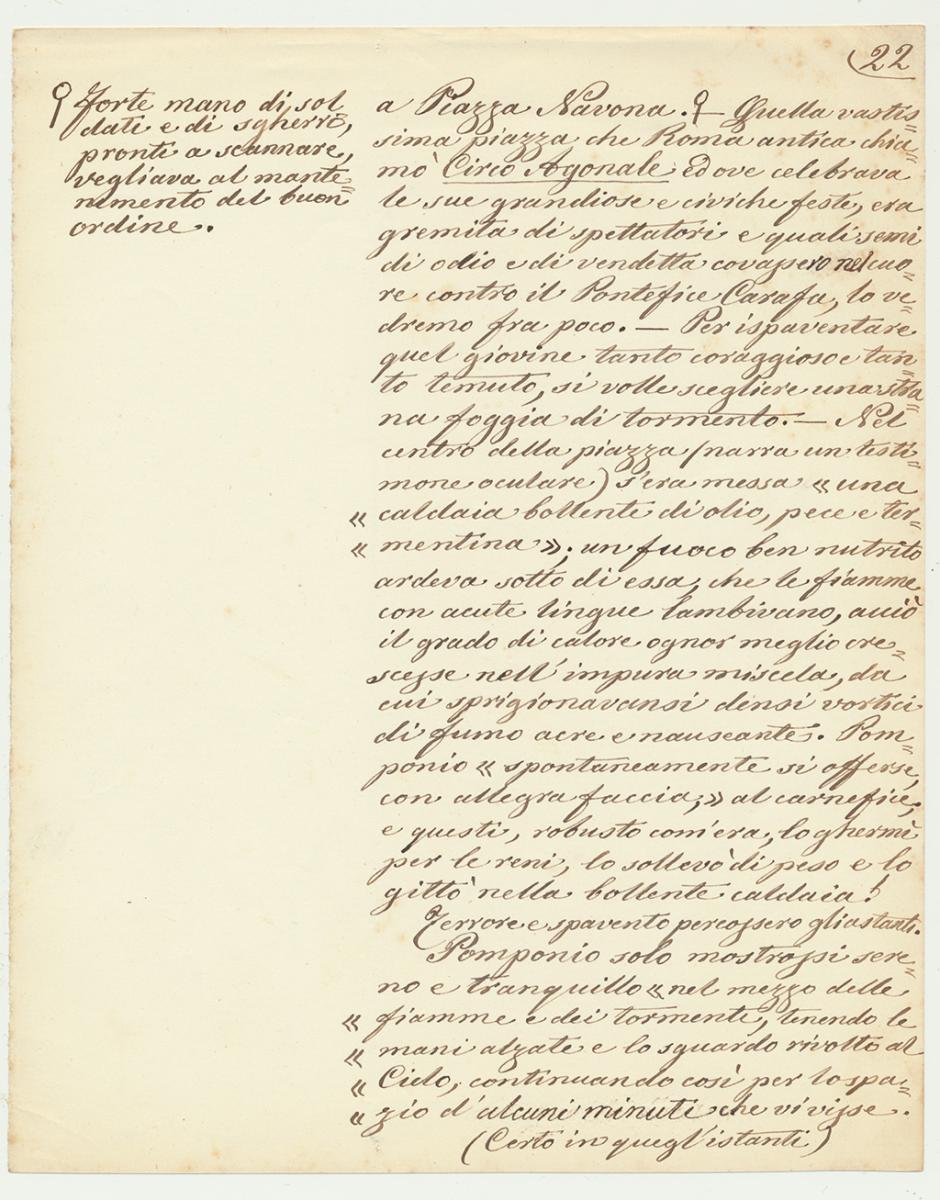 22
ϙ Forte mano di sol
dati e di sgherri,
pronti a scannare,
vegliava al mante=
nimento del buon
ordine.
a Piazza Navona. ϙ — Quella vastis=
sima piazza che Roma antica chia=
mò Circo Agonale ed ove celebrava
le sue grandiose e civiche feste, era
gremita di spettatori e quali semi
di odio e di vendetta covassero nel cuo=
re contro il Pontefice Carafa, lo ve=
dremo fra poco. — Per ispaventare
quel giovine tanto coraggioso e tan=
to temuto, si volle scegliere una stra=
na foggia di tormento. — Nel
centro della piazza (narra un testi=
mone oculare) s'era messa « una
« caldaia bollente di olio, pece e ter=
« mentina »; un fuoco ben nutrito
ardeva sotto di essa, che le fiamme
con acute lingue lambivano, acciò
il grado di calore ognor meglio cre=
scesse nell'impura miscela, da
cui sprigionavansi densi vortici
di fumo acre e nauseante. Pom=
ponio « spontaneamente si offerse,
con allegra faccia, » al carnefice;
e questi, robusto com'era, lo ghermì
per le reni, lo sollevò di peso e lo
gittò nella bollente caldaia!
Terrore e spavento percossero gli astanti.
Pomponio solo mostrossi sere=
no e tranquillo « nel mezzo delle
« fiamme e dei tormenti, tenendo le
« mani alzate e lo sguardo rivolto al
« Cielo, continuando così per lo spa=
« zio d'alcuni minuti che vivisse.
(Certo in quegl'istanti)